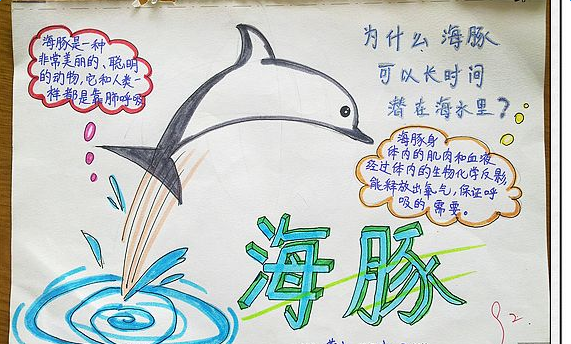 海豚是一种
非常美丽的、聪明
的动物,它和人类一
样都是靠肺呼吸
为什么海豚
可以长时间
潜在海水里?
海豚身
体内的肌肉和血液
经过体内的生物化学反影,
能释放出氧气,保证呼
吸的需要。
海豚